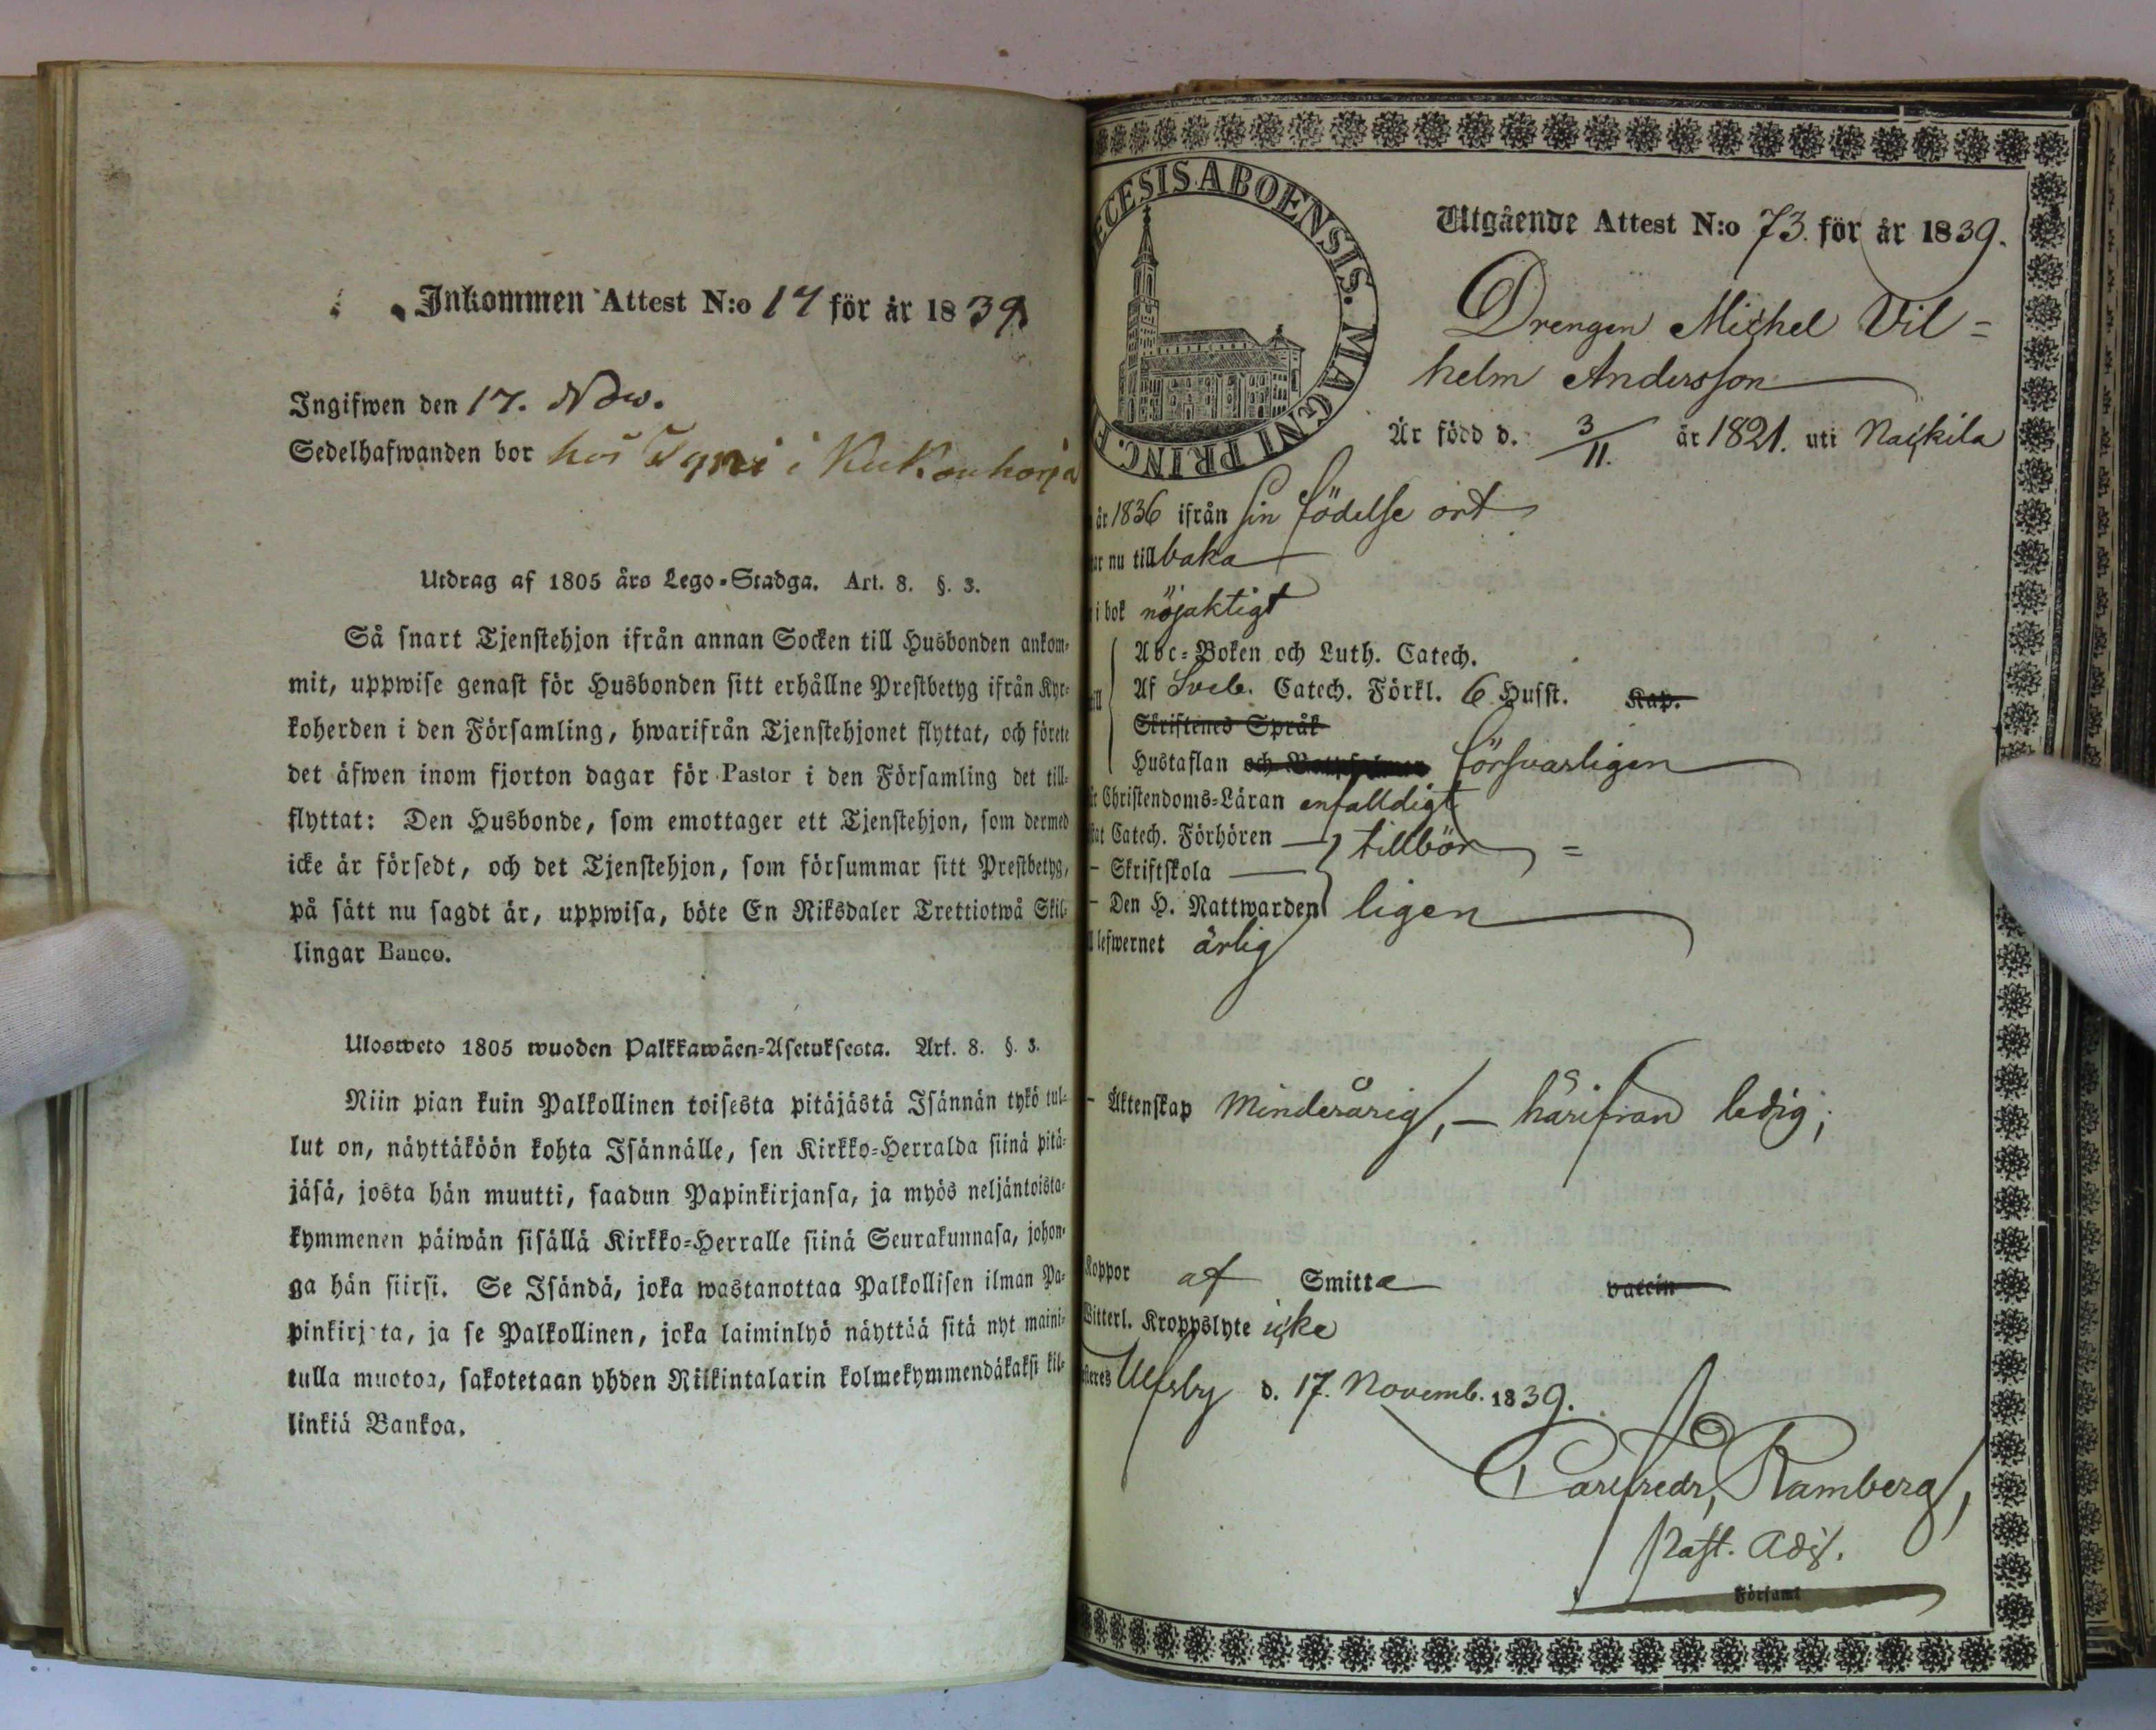 Inkommen Attest N:o 17 för år 1839
Ingifwen den 17. Nov.
Sedelhafwanden bor hos i
Utdrag af 1805 års Lego-Stadga. Art. 8. §. 3.
Så snart Tjenstehjon ifrån annan Socken till Husbonden ankom-
mit, uppwise genast för Husbonden sitt erhållne Prestbetyg ifrån Kyr-
koherden i den Församling, hwarifrån Tjenstehjonet flyttat, och förete
det äfwen inom fjorton dagar för Pastor i den Församling det till-
flyttat: Den Husbonde, som emottager ett Tjenstehjon, som dermed
icke är försedt, och det Tjenstehjon, som försummar sitt Prestbetyg,
på sätt nu sagdt är, uppwisa, böte En Riksdaler Trettiotwå Skil-
lingar Banco.
Ulosweto 1805 wuoden Palkkawäen-Asetuksesta. Art. 8. §. 3.
Niin pian kuin Palkollinen toisesta pitäjästä Isännän tykö tul-
lut on, näyttäköön kohta Isännälle, sen Kirkko-Herralda siinä pitä-
jäsä, josta hän muutti, saadun Papinkirjansa, ja myös neljäntoista-
kymmenen päiwän sisällä Kirkko-Herralle siinä Seurakunnasa, johon-
ga hän siirsi. Se Isändä, joka wastanottaa Palkollisen ilman Pa-
pinkirjata, ja se Palkollinen, joka laiminlyö näyttää sitä nyt maini-
tulla muotoa, sakotetaan yhden Riikintalarin kolmekymmendäkaksi kil-
linkiä Bankoa.
ECESIS ABOENSIS. MAGNI PRINC. F
Utgående Attest N:o 73. för år 1839.
Drengen Michel Vil-
helm Andersson
Är född d. 3/11. år 1821. uti Nackila
år 1836 ifrån sin födelse ort
nu tillbaka
i bok nöjaktigt
Abc-Boken och Luth. Catech.
Af Sveb. Catech. Förkl. 6 Husst. Kap.
Skriftenes Språk
Hustaflan och försvarligen
Christendoms-Läran enfalldigt
Catech. Förhören tillbör=
- Skriftskola
- Den H. Nattwarden ligen
lefwernet ärlig
- Äktenskap Minderårig, - härifrån ledig;
Koppor af Smitta vaccin
Witterl. Kroppslyte icke
Ulfsby d. 17. Novemb. 1839.
Carl Fredr. Ramberg,
Past. Adj.
Församl